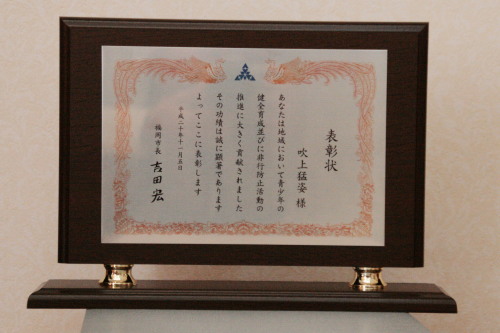 表彰状
吹上猛姿 様
あなたは地域において青少年の
健全育成並びに非行防止活動の
推進に大きく貢献されました
その功績は誠に顕著であります
よってここに表彰します
平成二十年十一月五日
福岡市長 吉田宏